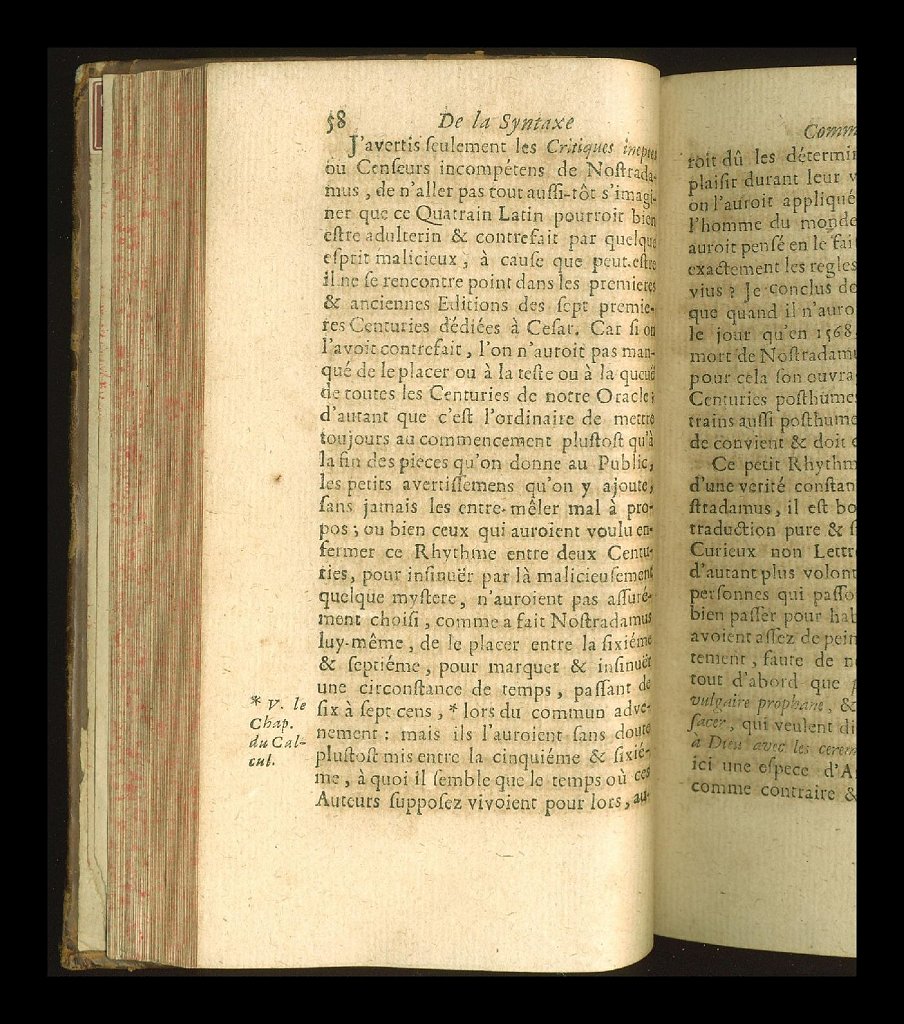 58 De la Syntaxe
J'avertis ſeulement les Critiques ineptes
ou Cenſeurs incompétens de Noſtrada-
mus, de n'aller pas tout auſſi-tôt s'imagi-
ner que ce Quatrain Latin pourroit bien
eſtre adulterin & contrefait par quelque
eſprit malicieux, à cauſe que peut-eſtre
il ne ſe rencontre point dans les premieres
& anciennes Editions des ſept premie-
res Centuries dédiées à Ceſar. Car ſi on
l'avoit contrefait, l'on n'auroit pas man-
qué de le placer ou à la teſte ou à la queuë
de toutes les Centuries de notre Oracle;
d'autant que c'eſt l'ordinaire de mettre
toujours au commencement pluſtoſt qu'à
la fin des pieces qu'on donne au Public,
les petits avertiſſemens qu'on y ajoute,
ſans jamais les entre-mêler mal à pro-
pos; ou bien ceux qui auroient voulu en-
fermer ce Rhythme entre deux Centu-
ries, pour inſinuër par là malicieuſement
quelque myſtere, n'auroient pas aſſuré-
ment choiſi, comme a fait Noſtradamus
luy-même, de le placer entre la ſixiéme
& ſeptiéme, pour marquer & inſinuër
une circonſtance de temps, paſſant de
ſix à ſept cens, * lors du commun adve-
nement : mais ils l'auroient ſans doute
pluſtoſt mis entre la cinquiéme & ſixié-
me, à quoi il ſemble que le temps où ces
Auteurs ſuppoſez vivoient pour lors, au-
* V. le
Chap.
du Cal-
cul.
Comm
roit dû les détermi
plaiſir durant leur v
on l'auroit appliqué
l'homme du monde
auroit penſé en le fai
exactement les regles
vius ? Je conclus do
que quand il n'auro
le jour qu'en 1568.
mort de Noſtradamu
pour cela ſon ouvra
Centuries poſthumes
trains auſſi poſthume
de convient & doit
Ce petit Rhythm
d'une verité conſtan
ſtradamus, il eſt bo
traduction pure & ſ
Curieux non Lettr
d'autant plus volont
perſonnes qui paſſo
bien paſſer pour hab
avoient aſſez de pein
tement, faute de
tout d'abord que
vulgaire prophane, &
ſacer, qui veulent di
à Dieu avec les cerem
ici une eſpece d'A
comme contraire &